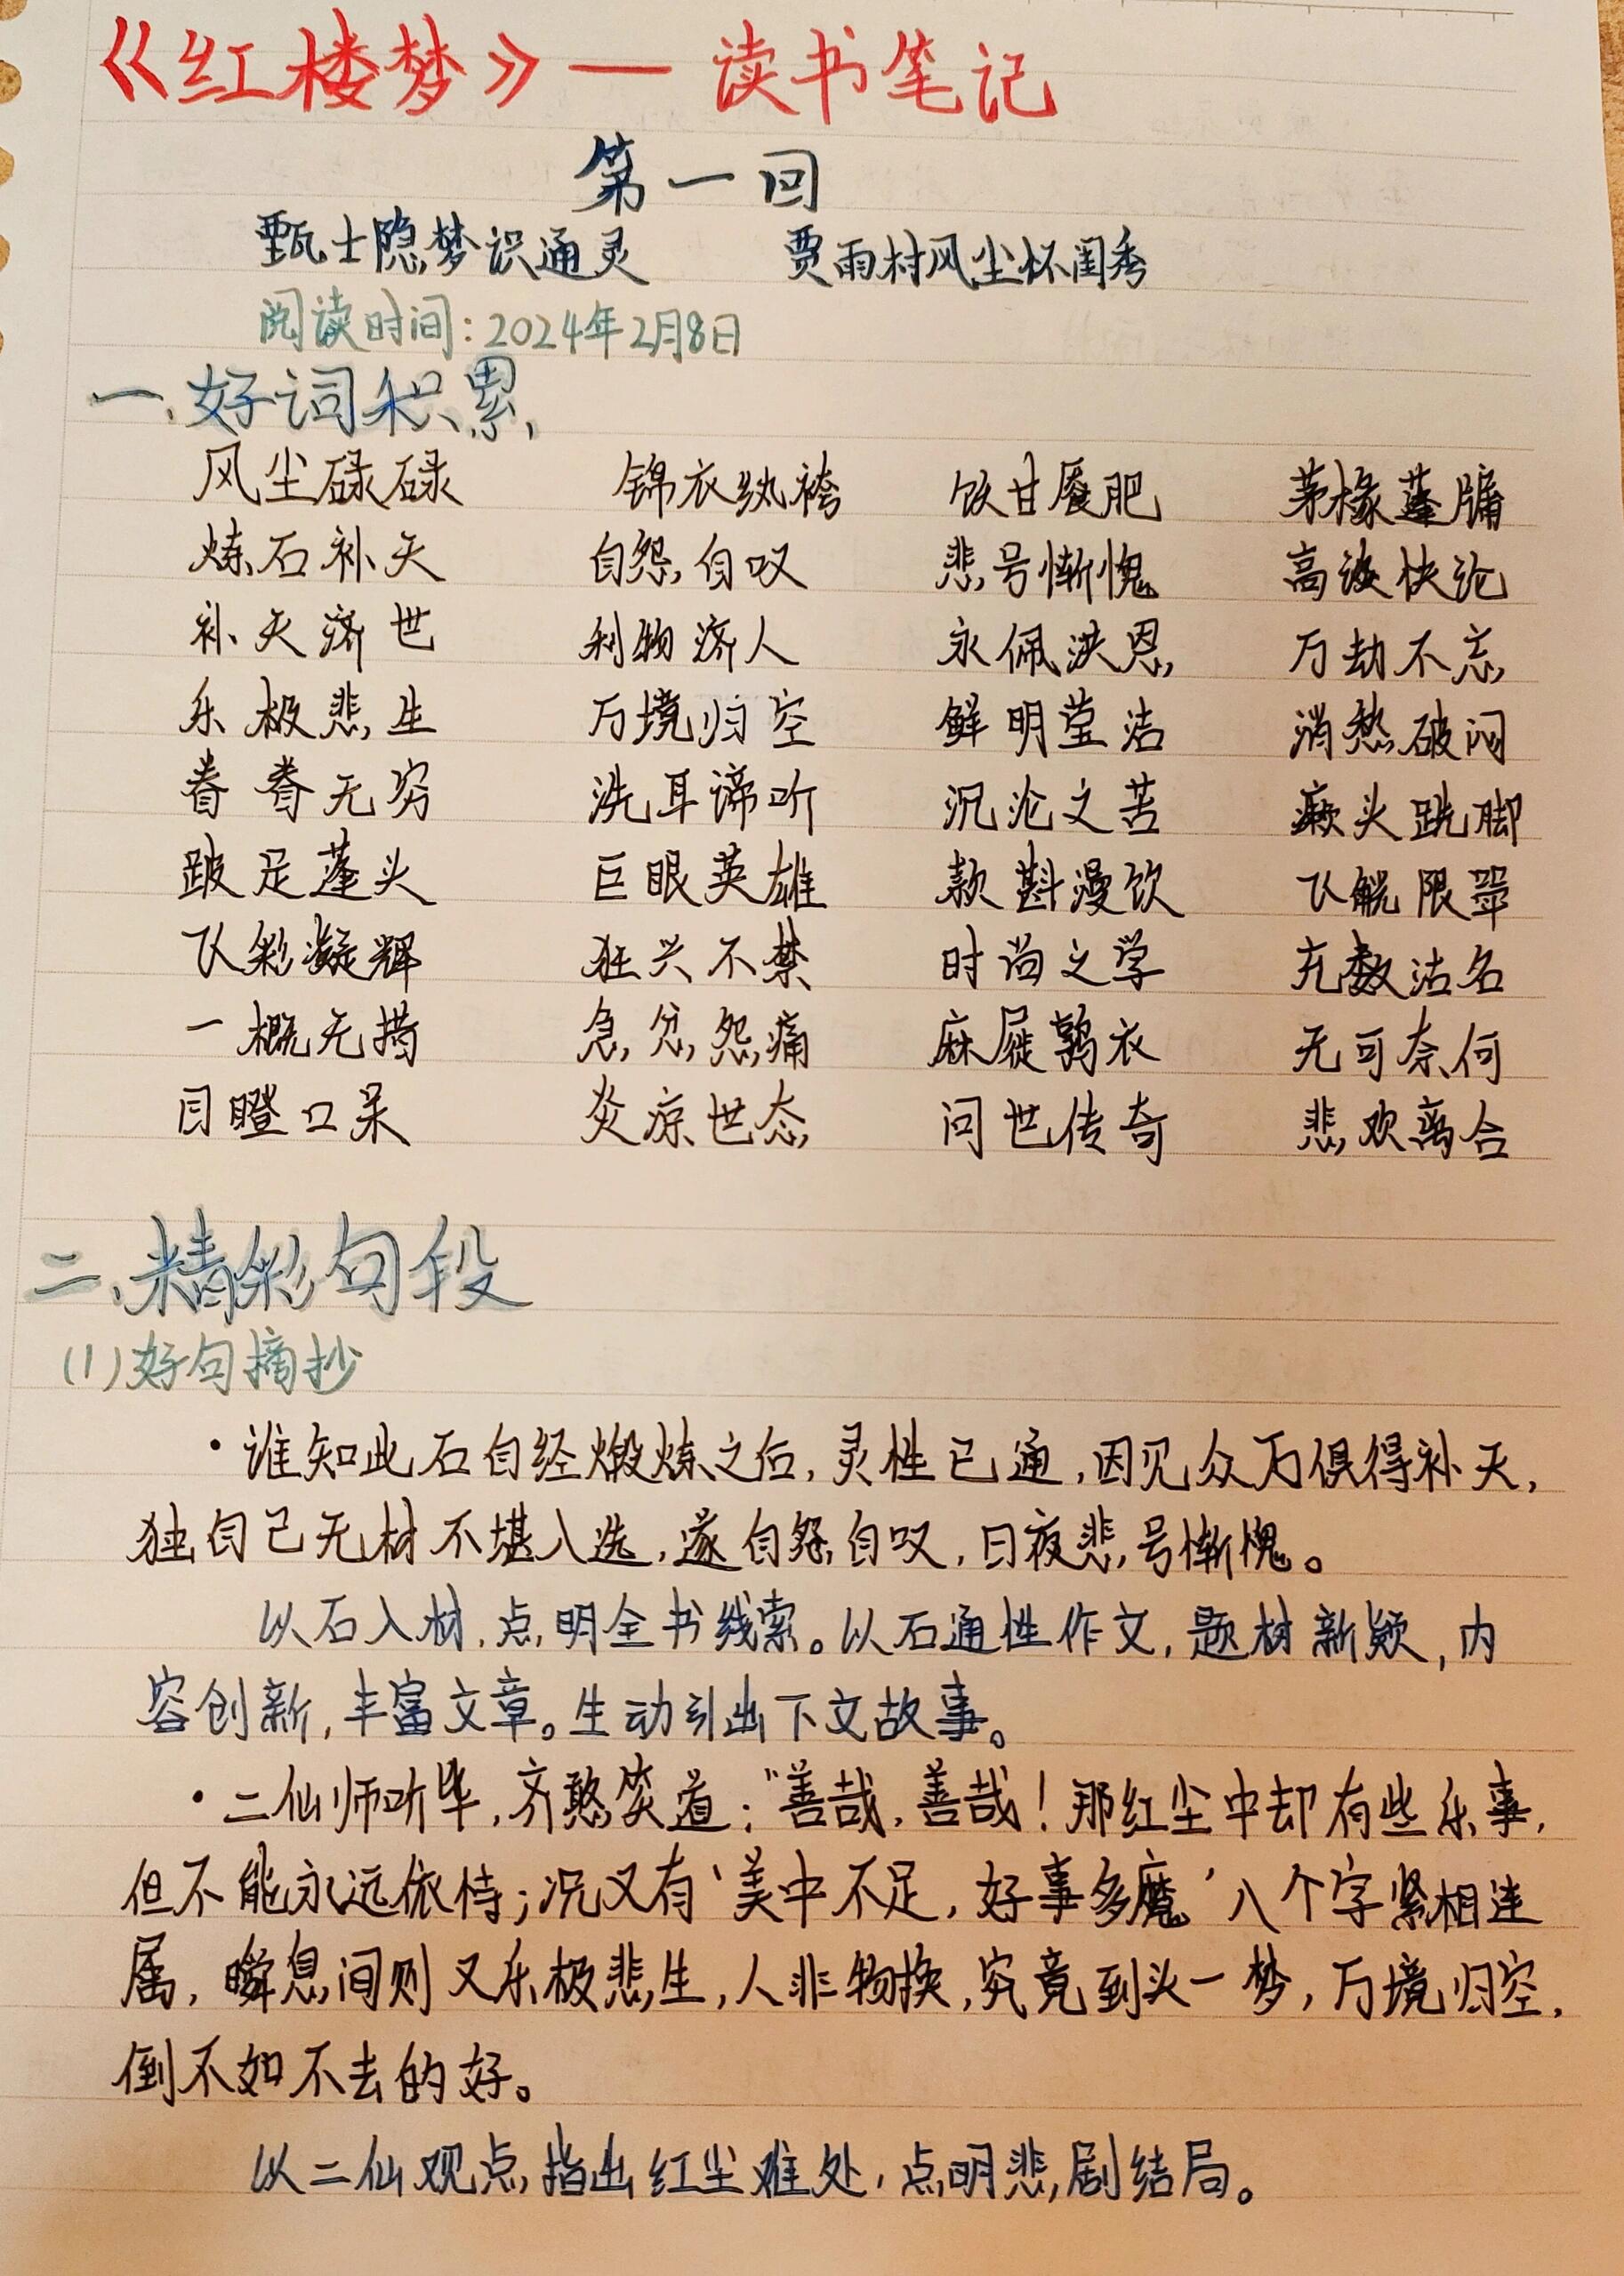 《红楼梦》— 读书笔记
第一回
甄士隐梦识通灵 贾雨村风尘怀闺秀
阅读时间:2024年2月8日
一、好词积累
风尘碌碌 锦衣纨袴 饮甘餍肥 茅椽蓬牖
炼石补天 自怨自叹 悲号惭愧 高谈快论
补天济世 利物济人 永佩洪恩 万劫不忘
乐极悲生 万境归空 鲜明莹洁 消愁破闷
眷眷无穷 洗耳谛听 沉沦之苦 癞头跣脚
跛足蓬头 巨眼英雄 款斟漫饮 飞觥限斝
飞彩凝辉 狂兴不禁 时尚之学 充数沽名
一概无措 急忿怨痛 麻屣鹑衣 无可奈何
目瞪口呆 炎凉世态 问世传奇 悲欢离合
二、精彩句段
(1)好句摘抄
·谁知此石自经煅炼之后,灵性已通,因见众石俱得补天,
独自己无材不堪入选,遂自怨自叹,日夜悲号惭愧。
以石入材,点明全书线索。以石通性作文,题材新颖,内
容创新,丰富文章。生动引出下文故事。
·二仙师听毕,齐憨笑道:“善哉,善哉!那红尘中却有些乐事,
但不能永远依恃;况又有‘美中不足,好事多魔’八个字紧相连
属,瞬息间则又乐极悲生,人非物换,究竟到头一梦,万境归空,
倒不如不去的好。
以二仙观点,指出红尘难处,点明悲剧结局。